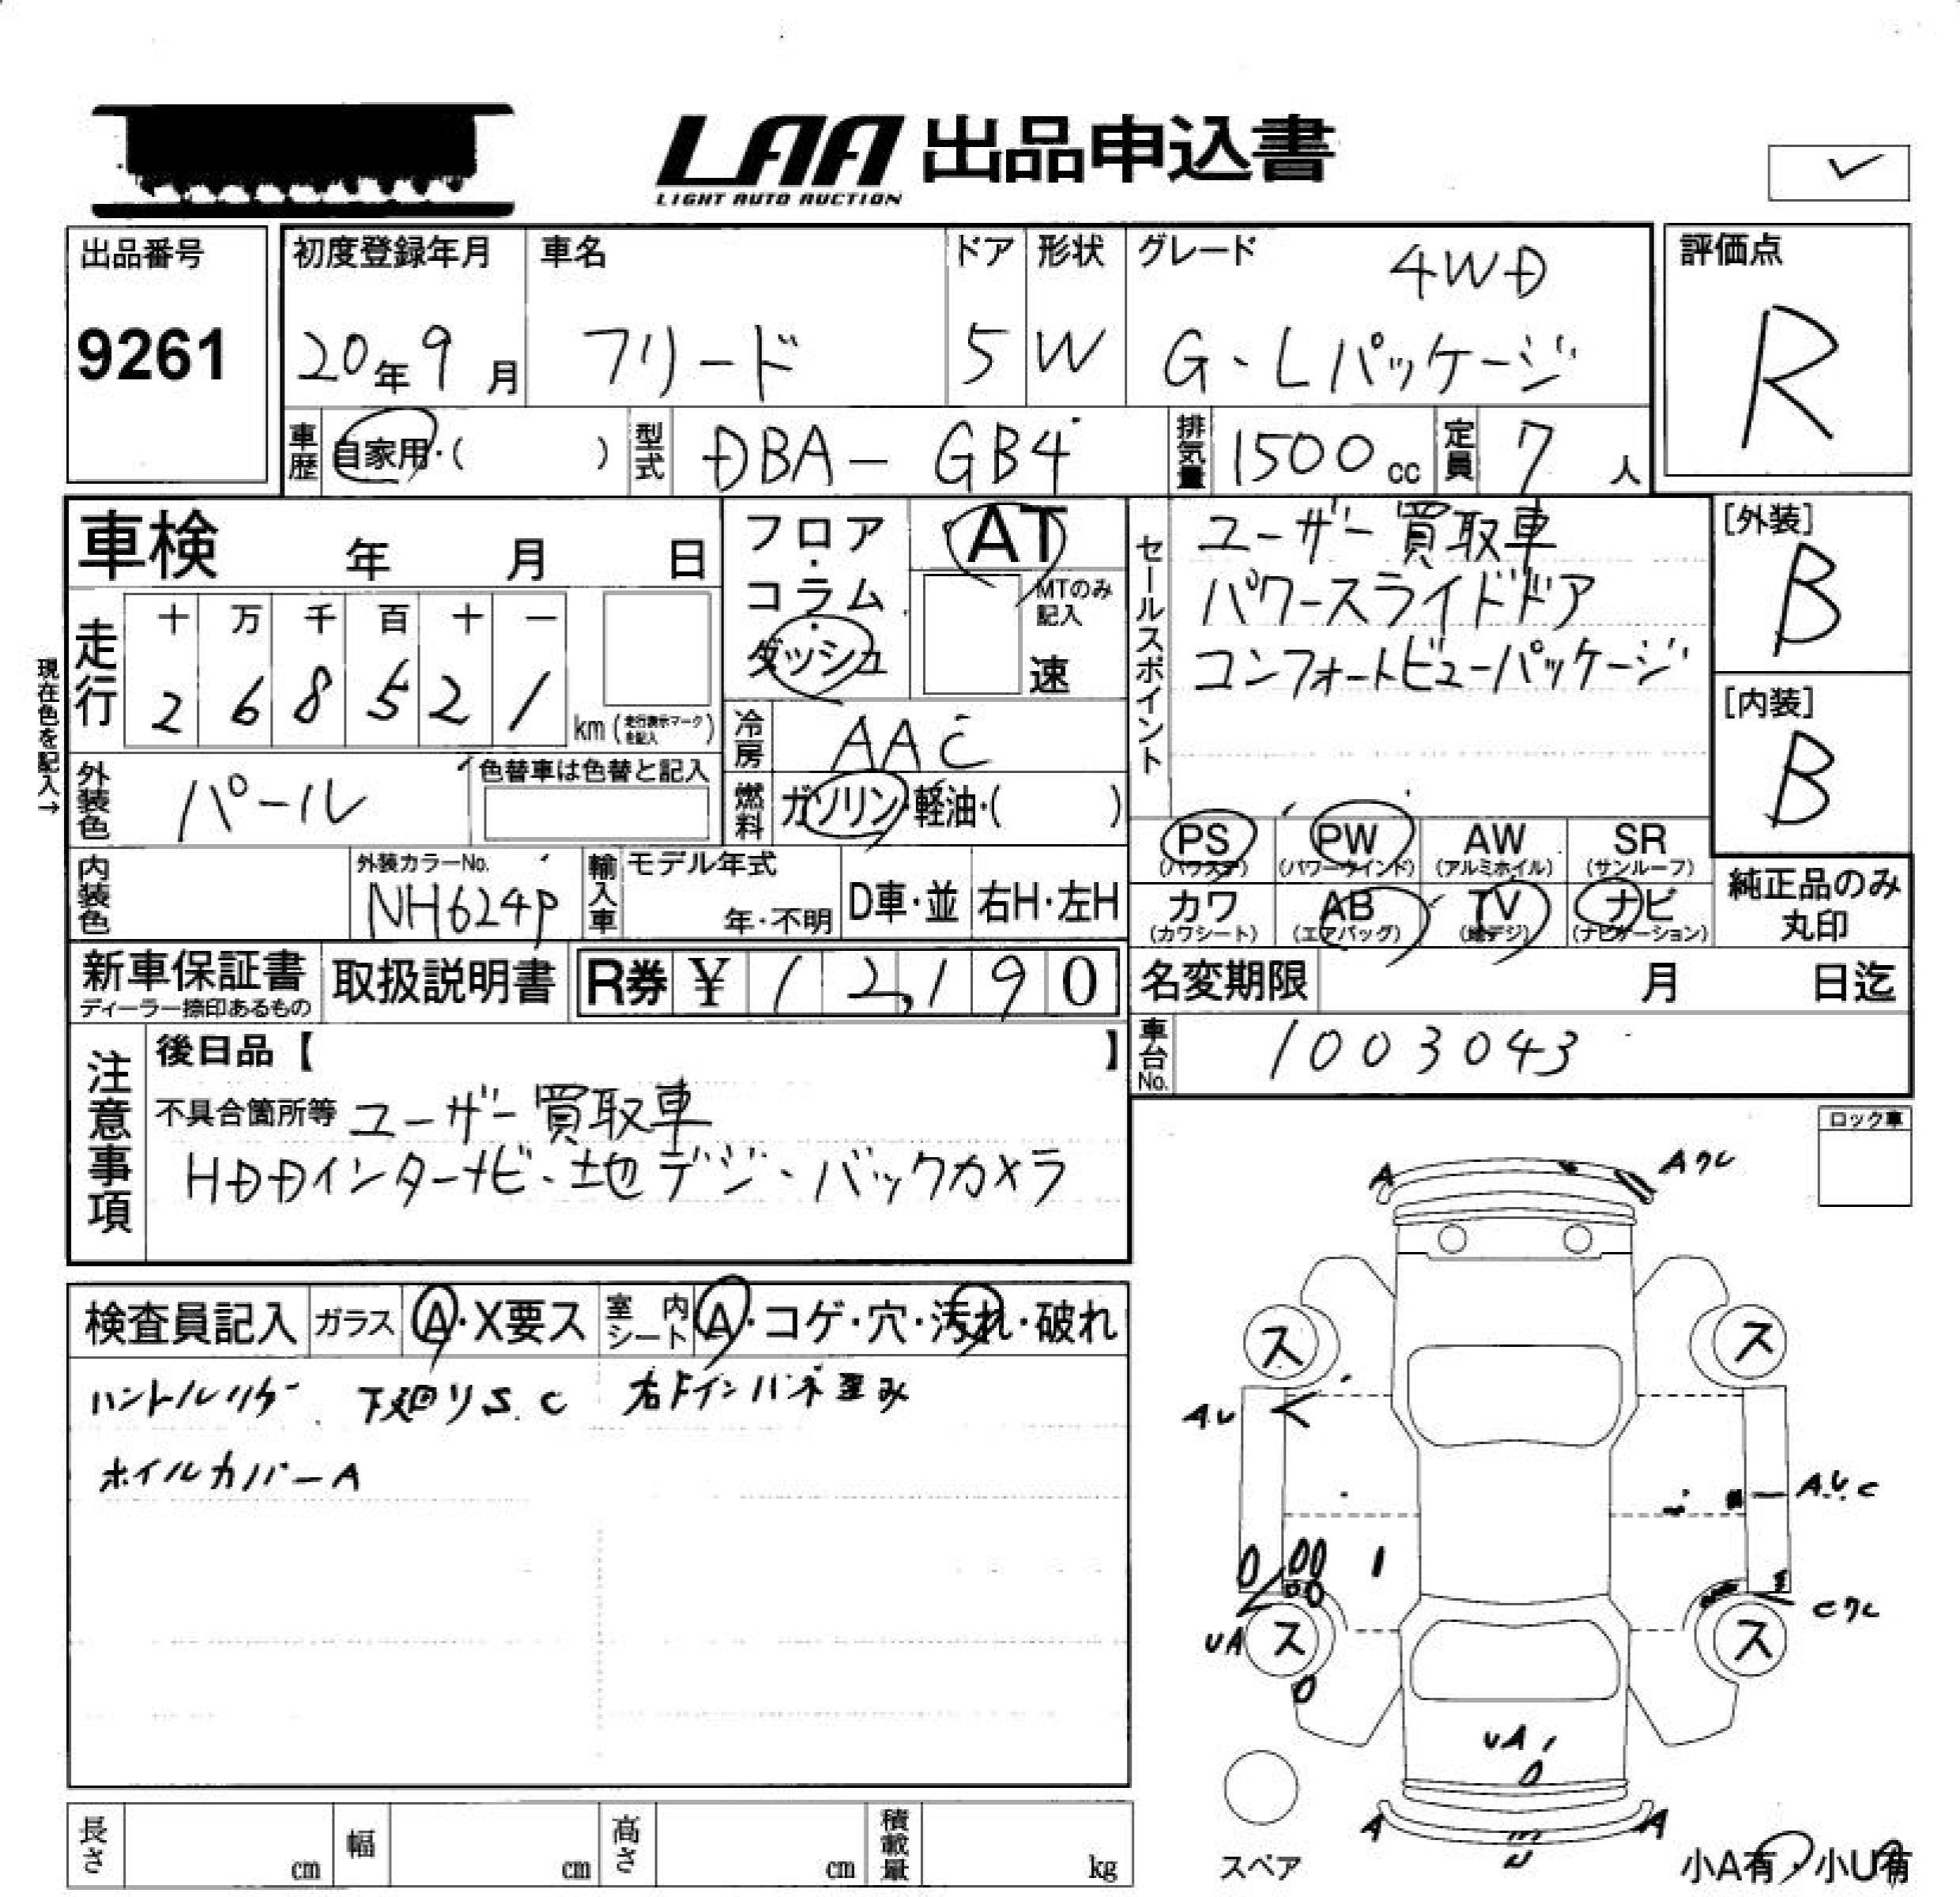 LAA 出品申込書
LIGHT AUTO AUCTION
出品番号
9261
初度登録年月
20年9月
車名
フリード
ドア
5
形状
W
グレード
4WD
G・Lパッケージ
評価点
R
車歴
自家用・( )
型式
DBA-GB4
排気量
1500cc
定員
7人
車検 年 月 日
フロア・コラム・ダッシュ
AT
MTのみ記入
速
セールスポイント
ユーザー買取車
パワースライドドア
コンフォートビューパッケージ
[外装]
B
[内装]
B
現在色を記入→
走行
十 万 千 百 十 一
2 6 8 5 2 1
km(走行表示マークを記入)
冷房
AAC
外装色
パール
色替車は色替と記入
燃料
ガソリン・軽油・( )
PS
(パワステ)
PW
(パワーウインド)
AW
(アルミホイル)
SR
(サンルーフ)
カワ
(カワシート)
AB
(エアバッグ)
TV
(地デジ)
ナビ
(ナビゲーション)
純正品のみ
丸印
内装色
外装カラーNo.
NH624P
輸入車
モデル年式
年・不明
D車・並
右H・左H
新車保証書
ディーラー捺印あるもの
取扱説明書
R券 ¥ 12,190
名変期限 月 日迄
車台No.
1003043
注意事項
後日品【 】
不具合箇所等 ユーザー買取車
HDDインターナビ・地デジ・バックカメラ
ロック車
検査員記入
ガラス A・X要ス
室内シート A・コゲ・穴・汚れ・破れ
下廻りS.C 右Fインパネ歪み
ホイルカバーA
A
Aワレ
ス
ス
A.U
A.U.C
Cワレ
UA
ス
ス
UA
A
U
A
スペア
小A有・小U有
長さ cm
幅 cm
高さ cm
積載量 kg